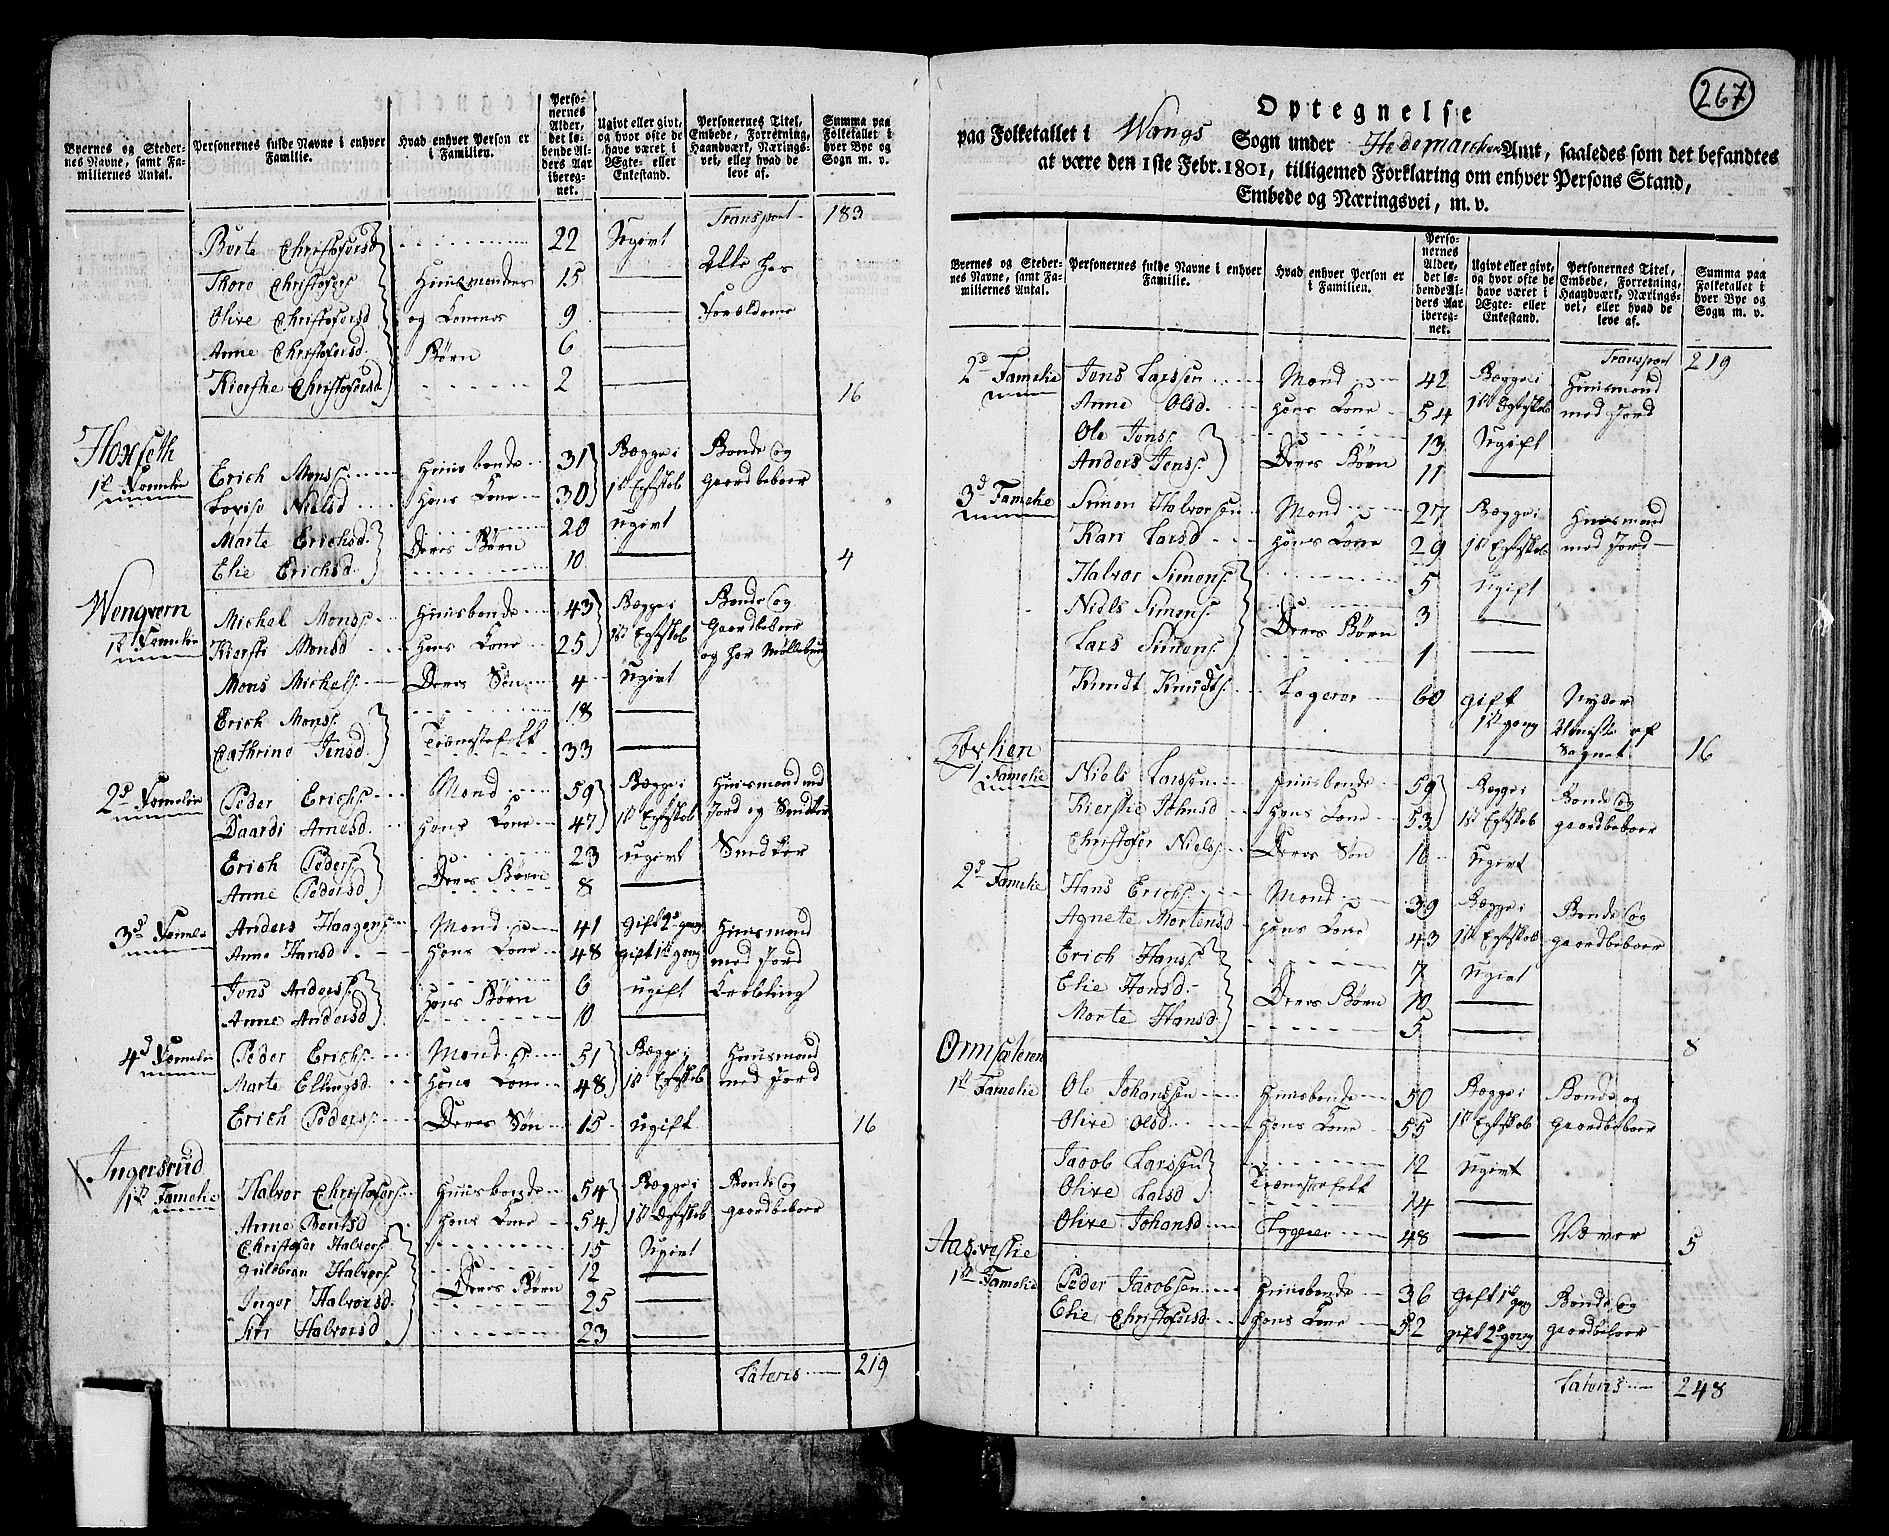 Byernes og Steder-
nes Navne, samt Fa-
miliernes Antal.
Personernes fulde Navne i enhver
Familie.
Hvad enhver Person er
i Familien.
Perso-
nernes
Alder,
det lø-
bende Al-
ders Aar
ibereg-
net.
Ugivt eller givt,
og hvor ofte de
have været i
Ægte- eller
Enkestand.
Personernes Titel,
Embede, Forretning,
Haandværk, Nærings-
vei, eller hvad de
leve af.
Summa paa
Folketallet i
hver Bye og
Sogn m. v.
Transport 183
Børte Christofersd 22 Ugivt Alle hos
Thore Christofers Huusmandens 15
Olive Christofersd og Konens 9 Forældrene
Anne Christofersd Børn 6
Kierstie Christofersd 2
16
Hoxseth
1st Familie
Erich Monss. Huusbonde 31 Begge i Bonde og
Lovise Nielsd Hans Kone 30 1st Egteskab Gaardbeboer
Marte Erichsd. Deres Børn 20 ugivt
Elie Erichsd. 10
4
Wengvern
1st Familie
Michel Monss. Huusbonde 43 Begge i Bonde og
Kierste Monsd Hans Kone 25 1st Egteskab Gaardbeboer
Mons Michels. Deres Søn 4 Ugivt og har Møllebrug
Erich Monss. Tienestefolk 18
Cathrine Jensd. 33
2d Familie
Peder Erichs. Mand 59 Begge i Huusmand med
Baardi Arnesd. Hans Kone 47 1st Egteskab Jord og Snedker
Erich Peders. Deres Børn 23 ugivt Snedker
Anne Pedersd. 8
3d Familie
Anders Haagens. Mand 41 gift 2d gang Huusmand
Anne Hansd. Hans Kone 48 gift 1st gang med Jord
Jens Anders. Hans Børn 6 ugift
Anne Andersd. 10
4d Familie
Peder Erichs. Mand 51 Begge i Huusmand
Marte Ellingsd. Hans Kone 48 1st Egteskab med Jord
Erich Peders. Deres Søn 15 ugift
16
Ingersrud
1st Familie
Halvor Christofers. Huusbonde 54 Begge i Bonde og
Anne Bentsd Hans Kone 54 1st Egteskab Gaardbeboer
Christofer Halvors. 15 Ugivt
Guldbran Halvors. Deres Børn 12
Inger Halvorsd. 25
Siri Halvorsd 23
Lateris 219
267
Optegnelse
paa Folketallet i Wangs Sogn under Hedemarchens Amt, saaledes som det befandtes
at være den 1ste Febr. 1801, tilligemed Forklaring om enhver Persons Stand,
Embede og Næringsvei, m. v.
Byernes og Steder-
nes Navne, samt Fa-
miliernes Antal.
Personernes fulde Navne i enhver
Familie.
Hvad enhver Person er
i Familien.
Perso-
nernes
Alder,
det lø-
bende Al-
ders Aar
ibereg-
net.
Ugivt eller givt,
og hvor ofte de
have været i
Ægte- eller
Enkestand.
Personernes Titel,
Embede, Forretning,
Haandværk, Nærings-
vei, eller hvad de
leve af.
Summa paa
Folketallet i
hver Bye og
Sogn m. v.
Transport 219
2d Famelie
Jens Larssen Mand 42 Begge i Huusmand
Anne Olsd. Hans Kone 54 1st Egteskab med Jord
Ole Jenss. 13 Ugift
Anders Jenss. Deres Børn 11
3d Famelie
Simen Halvorsen Mand 27 Begge i Huusmand
Kari Larsd Hans Kone 29 1st Egteskab med Jord
Halvor Simens. 5 Ugift
Niels Simens. Deres Børn 3
Lars Simens. 1
Knudt Knudts. Logerer 60 gift 1st gang Nyder Almisse af Sognet
16
Løxlien
1 Famelie
Niels Larssen Huusbonde 59 Begge i Bonde og
Kierstie Johnsd Hans Kone 53 1st Egteskab Gaardbeboer
Christofer Niels. Deres Søn 16 Ugivt
2d Famelie
Hans Erichs. Mand 39 Begge i Bonde og
Agnete Mortensd Hans Kone 43 1st Egteskab Gaardbeboer
Erich Hans. 7 Ugivt
Elie Hansd. Deres Børn 10
Morte Hansd. 5
8
Ormsæteren
1st Famelie
Ole Johanssen Huusbonde 50 Begge i Bonde og
Olive Olsd. Hans Kone 55 1st Egteskab Gaardbeboer
Jacob Larssen 12 Ugivt
Olive Larsd Tienestefolk 14
Olive Johansd Logerer 48 Væver
5
Aasveslie
1st Famelie
Peder Jacobsen Huusbonde 36 Gift 1st gang Bonde og
Elie Christofersd Hans Kone 52 gift 2d gang Gaardbeboer
Lateris 248